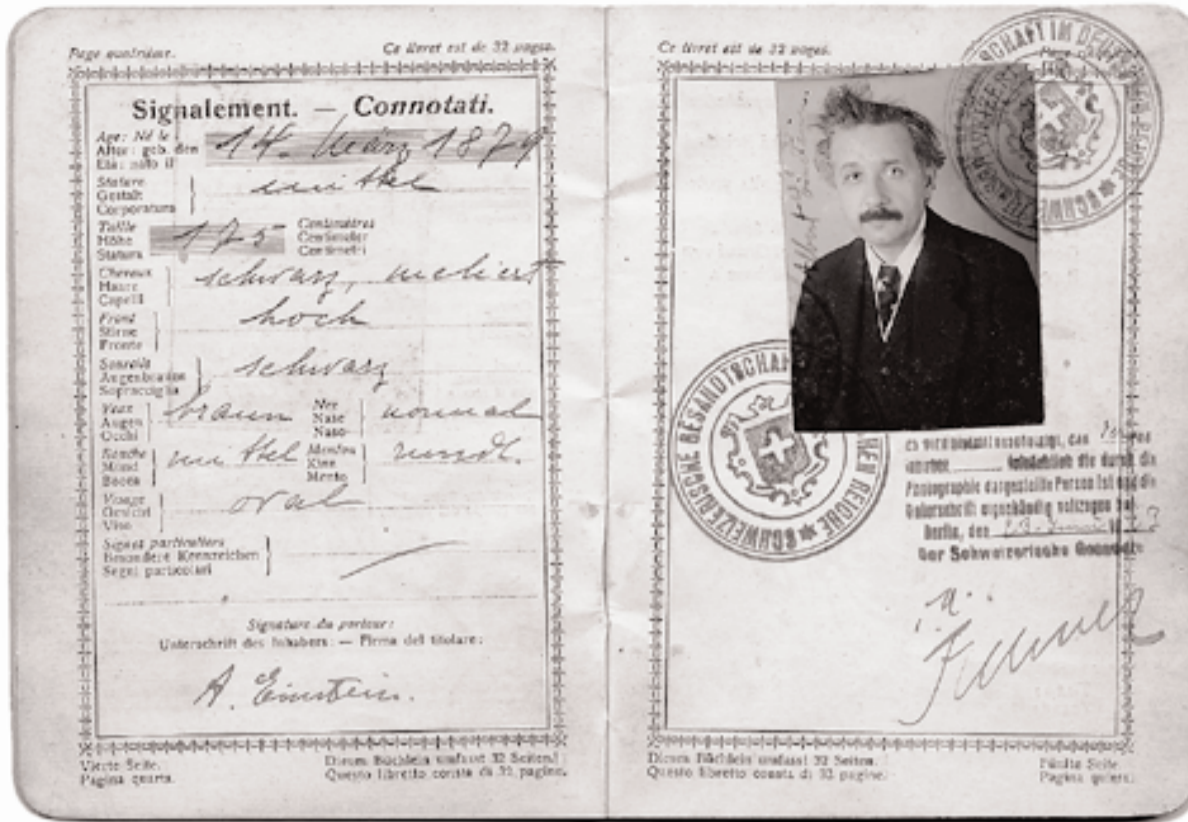 Page quatrième.
Ce livret est de 32 pages.
Signalement. — Connotati.
Age: Né le
Alter: geb. den
Età: nato il
14. März 1879
Stature
Gestalt
Corporatura
mittel
Taille
Höhe
Statura
175
Centimètres
Centimeter
Centimetri
Cheveux
Haare
Capelli
schwarz, meliert
Front
Stirne
Fronte
hoch
Sourcils
Augenbrauen
Sopracciglia
schwarz
Yeux
Augen
Occhi
braun
Nez
Nase
Naso
normal
Bouche
Mund
Bocca
mittel
Menton
Kinn
Mento
rundl.
Visage
Gesicht
Viso
oval
Signes particuliers
Besondere Kennzeichen
Segni particolari
Signature du porteur:
Unterschrift des Inhabers: — Firma del titolare:
A. Einstein.
Vierte Seite.
Pagina quarta.
Dieses Büchlein umfasst 32 Seiten.
Questo libretto consta di 32 pagine.
Ce livret est de 32 pages.
SCHWEIZERISCHE GESANDTSCHAFT IM DEUTSCHEN REICHE
SCHWEIZERISCHE GESANDTSCHAFT DEUTSCHEN REICHE
die durch die
Photographie dargestellte Person ist und die
Unterschrift eigenhändig vollzogen hat
Berlin, den
Der Schweizerische Gesandte
Dieses Büchlein umfasst 32 Seiten.
Questo libretto consta di 32 pagine.
Fünfte Seite.
Pagina quinta.